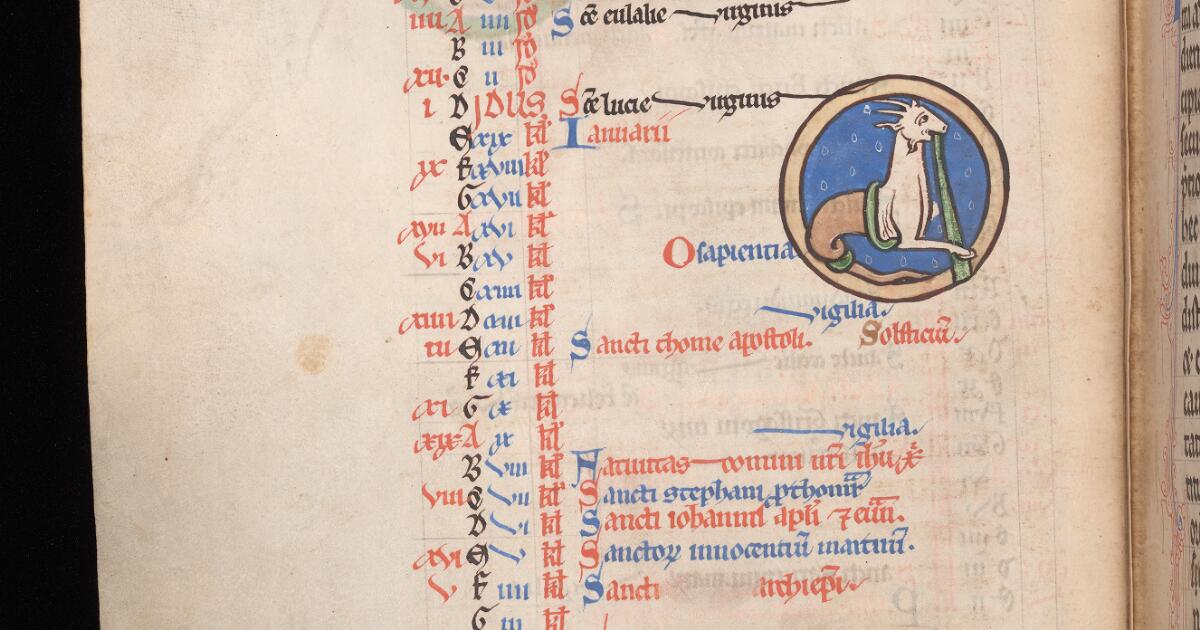 iiii A iiii id Sce eulalie virginis
B iii id
xii. C ii id
i D IDUS Sce lucie virginis
E xix kl Ianuarii
ix F xviii kl
G xvii kl
xvii A xvi kl
vi B xv kl O sapientia
C xiiii kl
xiiii D xiii kl vigilia.
iii E xii kl Sancti thome apostoli. Solsticiū.
F xi kl
xi G x kl
xix A ix kl vigilia.
B viii kl Natiuitas domini nr̄i ih̄u xp̄i
viii C vii kl Sancti stephani prothomr̄
D vi kl Sancti iohannis apl̄i ⁊ euū.
xvi E v kl Sanctoꝝ innocentiū martirū.
v F iiii kl Sancti archiep̄i.
G iii kl